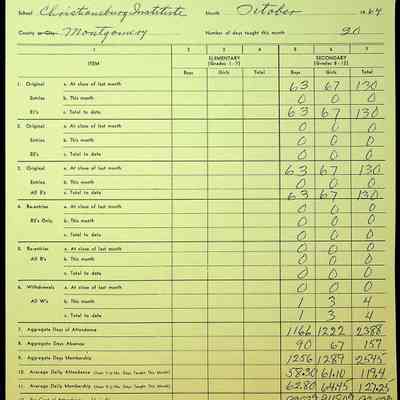 School Christiansburg Institute Month October 1964
County or City Montgomery Number of days taught this month 20
1 2 3 4 5 6 7
ITEM ELEMENTARY (Grades 1-7) SECONDARY (Grades 8-12)
Boys Girls Total Boys Girls Total
1. Original a. At close of last month 63 67 130
Entries b. This month 0 0 0
E1's c. Total to date 63 67 130
2. Original a. At close of last month 0 0 0
Entries b. This month 0 0 0
E2's c. Total to date 0 0 0
3. Original a. At close of last month 63 67 130
Entries b. This month 0 0 0
All E's c. Total to date 63 67 130
4. Re-entries a. At close of last month 0 0 0
RE's Only b. This month 0 0 0
c. Total to date 0 0 0
5. Re-entries a. At close of last month 0 0 0
All R's b. This month 0 0 0
c. Total to date 0 0 0
6. Withdrawals a. At close of last month 0 0 0
All W's b. This month 1 3 4
c. Total to date 1 3 4
7. Aggregate Days of Attendance 1166 1222 2388
8. Aggregate Days Absence 90 67 157
9. Aggregate Days Membership 1256 1289 2545
10. Average Daily Attendance 58.30 61.10 119.4
11. Average Daily Membership 62.80 64.45 127.25